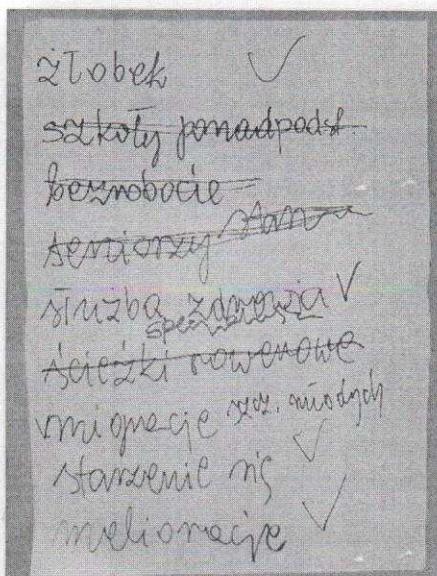 żłobek ✓
szkoły ponadpodst.
bezrobocie
seniorzy
służba zdrowia ✓
ścieżki rowerowe
migracje szcz. młodych
starzenie się ✓
melioracje ✓